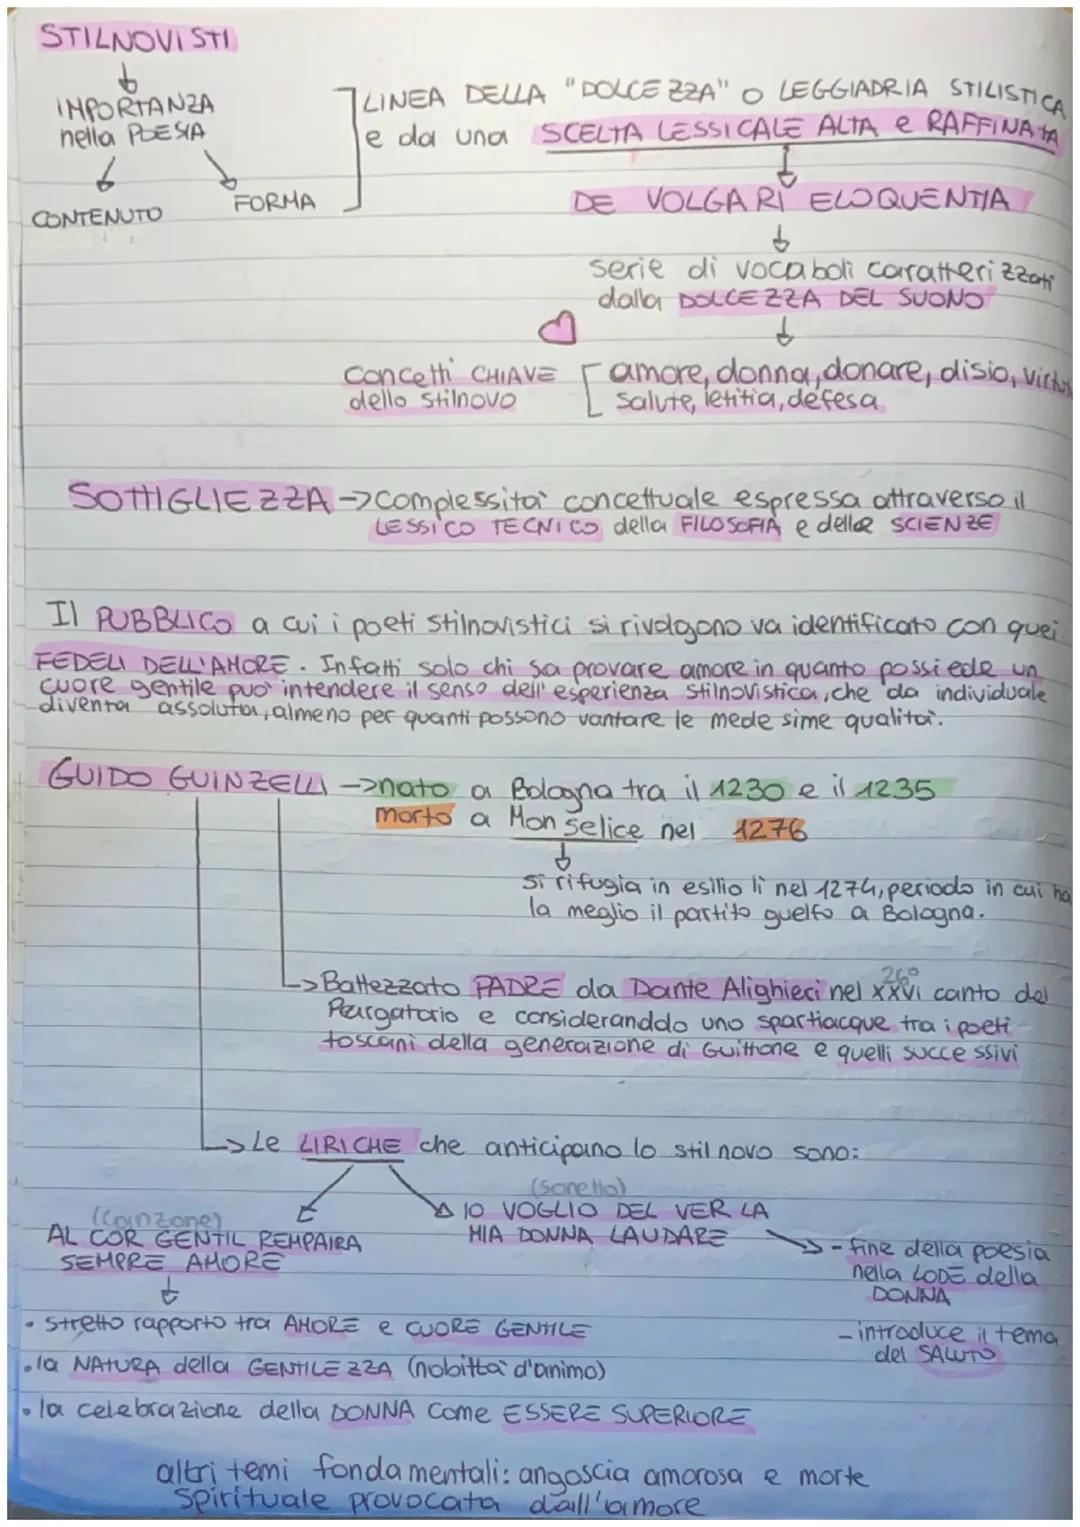 STILNOVISTI
IMPORTANZA
nella POESIA
CONTENUTO
FORMA
LINEA DELLA "DOLCEZZA" O LEGGIADRIA STILISTICA
e da una SCELTA LESSICALE ALTA e RAFFINATA
DE VOLGARI ELOQUENTIA
serie di vocaboli caratterizzati
dalla DOLCEZZA DEL SUONO
concetti CHIAVE
dello stilnovo
amore, donna, donare, disio,
salute, letitia, defesa
SOTTIGLIEZZA → complessità concettuale espressa attraverso il
LESSICO TECNICO della FILOSOFIA e delle SCIENZE
Il PUBBLICO a cui i poeti stilnovistici si rivolgono va identificato con quei
FEDELI DELL'AMORE. Infatti solo chi sa provare amore in quanto possiede un
cuore gentile può intendere il senso dell'esperienza stilnovistica, che da individuale
diventa assoluta, almeno per quanti possono vantare le medesime qualità.
GUIDO GUINZELLI → nato a Bologna tra il 1230 e il 1235
morto a Monselice nel 1276
si rifugia in esilio lì nel 1274, periodo in cui ha
la meglio il partito guelfo a Bologna.
26°
→ Battezzato PADRE da Dante Alighieri nel XXVI canto del
Purgatorio e consideranddo uno spartiacque tra i poeti
toscani della generazione di Guittone e quelli successivi
→ Le LIRICHE che anticipano lo stil novo sono:
(Canzone)
AL COR GENTIL REMPAIRA
SEMPRE AMORE
(Sonetto)
IO VOGLIO DEL VER LA
MIA DONNA LAUDARE
- fine della poesia
nella LODE della
DONNA
- introduce il tema
del SALUTO
• stretto rapporto tra AMORE e CUORE GENTILE
• la NATURA della GENTILEZZA (nobiltà d'animo)
• la celebrazione della DONNA come ESSERE SUPERIORE
altri temi fondamentali: angoscia amorosa e morte
spirituale provocata dall'amore